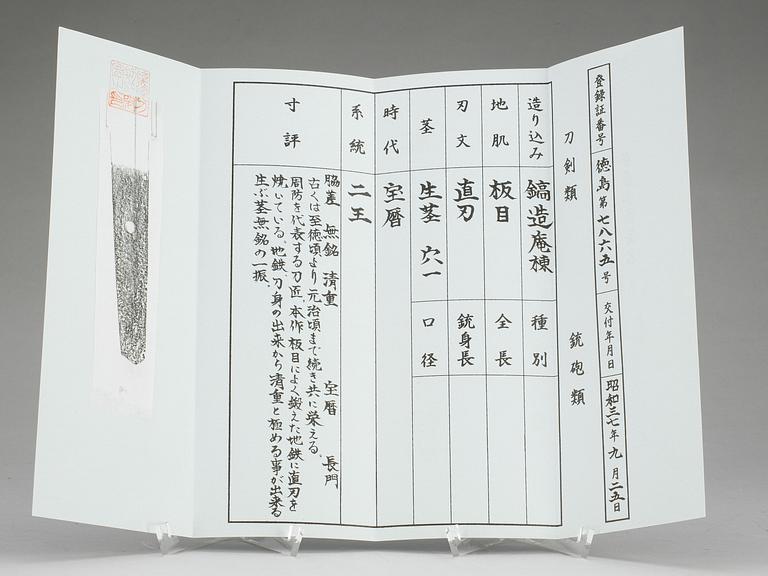 登録証番号 徳島 第 七八六五 号 交付年月日 昭和 三七 年 九 月 二五 日
刀剣類 銃砲類
造り込み 鎬造庵棟 種別
地肌 板目 全長
刃文 直刃 銃身長
茎 生茎 穴一 口径
時代 宝暦
系統 二王
寸評
脇差 無銘 清重 宝暦 長門
古くは至徳頃より元治頃まで続き共に栄える。
周防を代表する刀匠、本作板目によく鍛えた地鉄に直刃を
焼いている。地鉄、刀身の出来から清重と極める事が出来る
生ぶ茎無銘の一振。